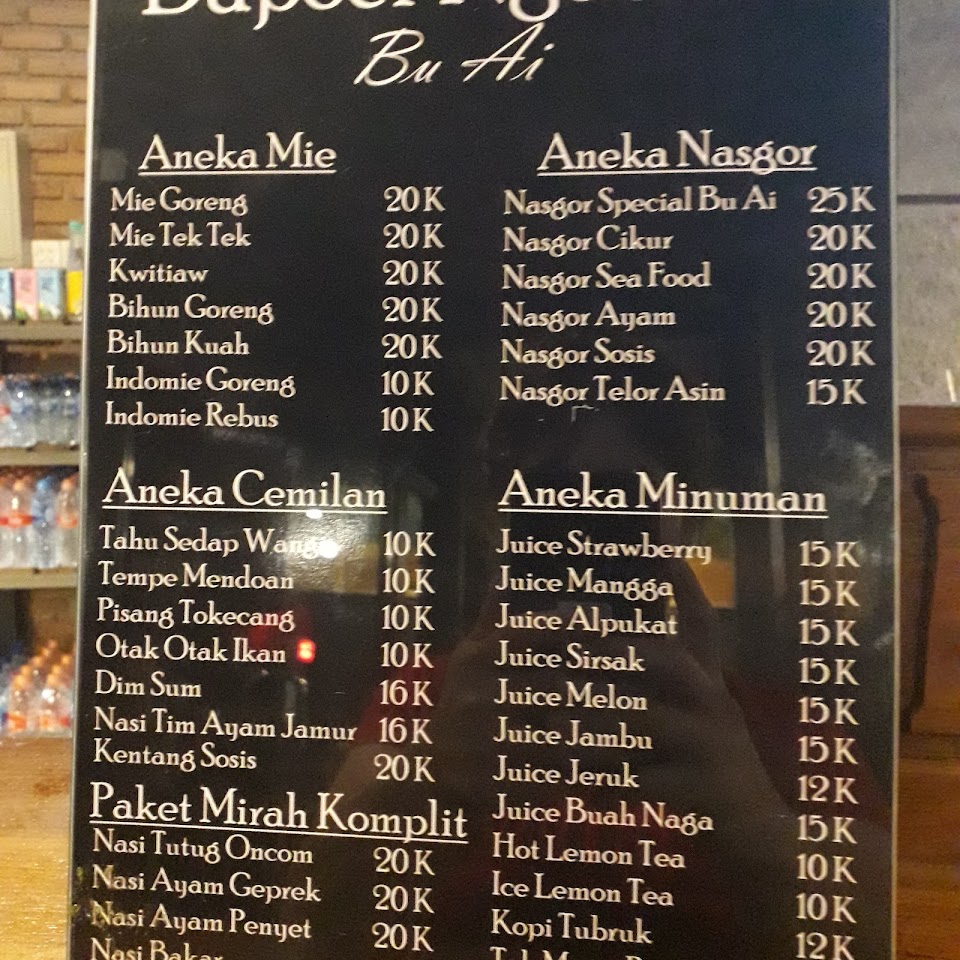 Bu Ai
Aneka Mie
Mie Goreng 20 K
Mie Tek Tek 20 K
Kwitiaw 20 K
Bihun Goreng 20 K
Bihun Kuah 20 K
Indomie Goreng 10 K
Indomie Rebus 10 K
Aneka Nasgor
Nasgor Special Bu Ai 25 K
Nasgor Cikur 20 K
Nasgor Sea Food 20 K
Nasgor Ayam 20 K
Nasgor Sosis 20 K
Nasgor Telor Asin 15 K
Aneka Cemilan
Tahu Sedap Wangi 10 K
Tempe Mendoan 10 K
Pisang Tokecang 10 K
Otak Otak Ikan 10 K
Dim Sum 16 K
Nasi Tim Ayam Jamur 16 K
Kentang Sosis 20 K
Paket Mirah Komplit
Nasi Tutug Oncom 20 K
Nasi Ayam Geprek 20 K
Nasi Ayam Penyet 20 K
Nasi Bakar
Aneka Minuman
Juice Strawberry 15 K
Juice Mangga 15 K
Juice Alpukat 15 K
Juice Sirsak 15 K
Juice Melon 15 K
Juice Jambu 15 K
Juice Jeruk 12 K
Juice Buah Naga 15 K
Hot Lemon Tea 10 K
Ice Lemon Tea 10 K
Kopi Tubruk 12 K